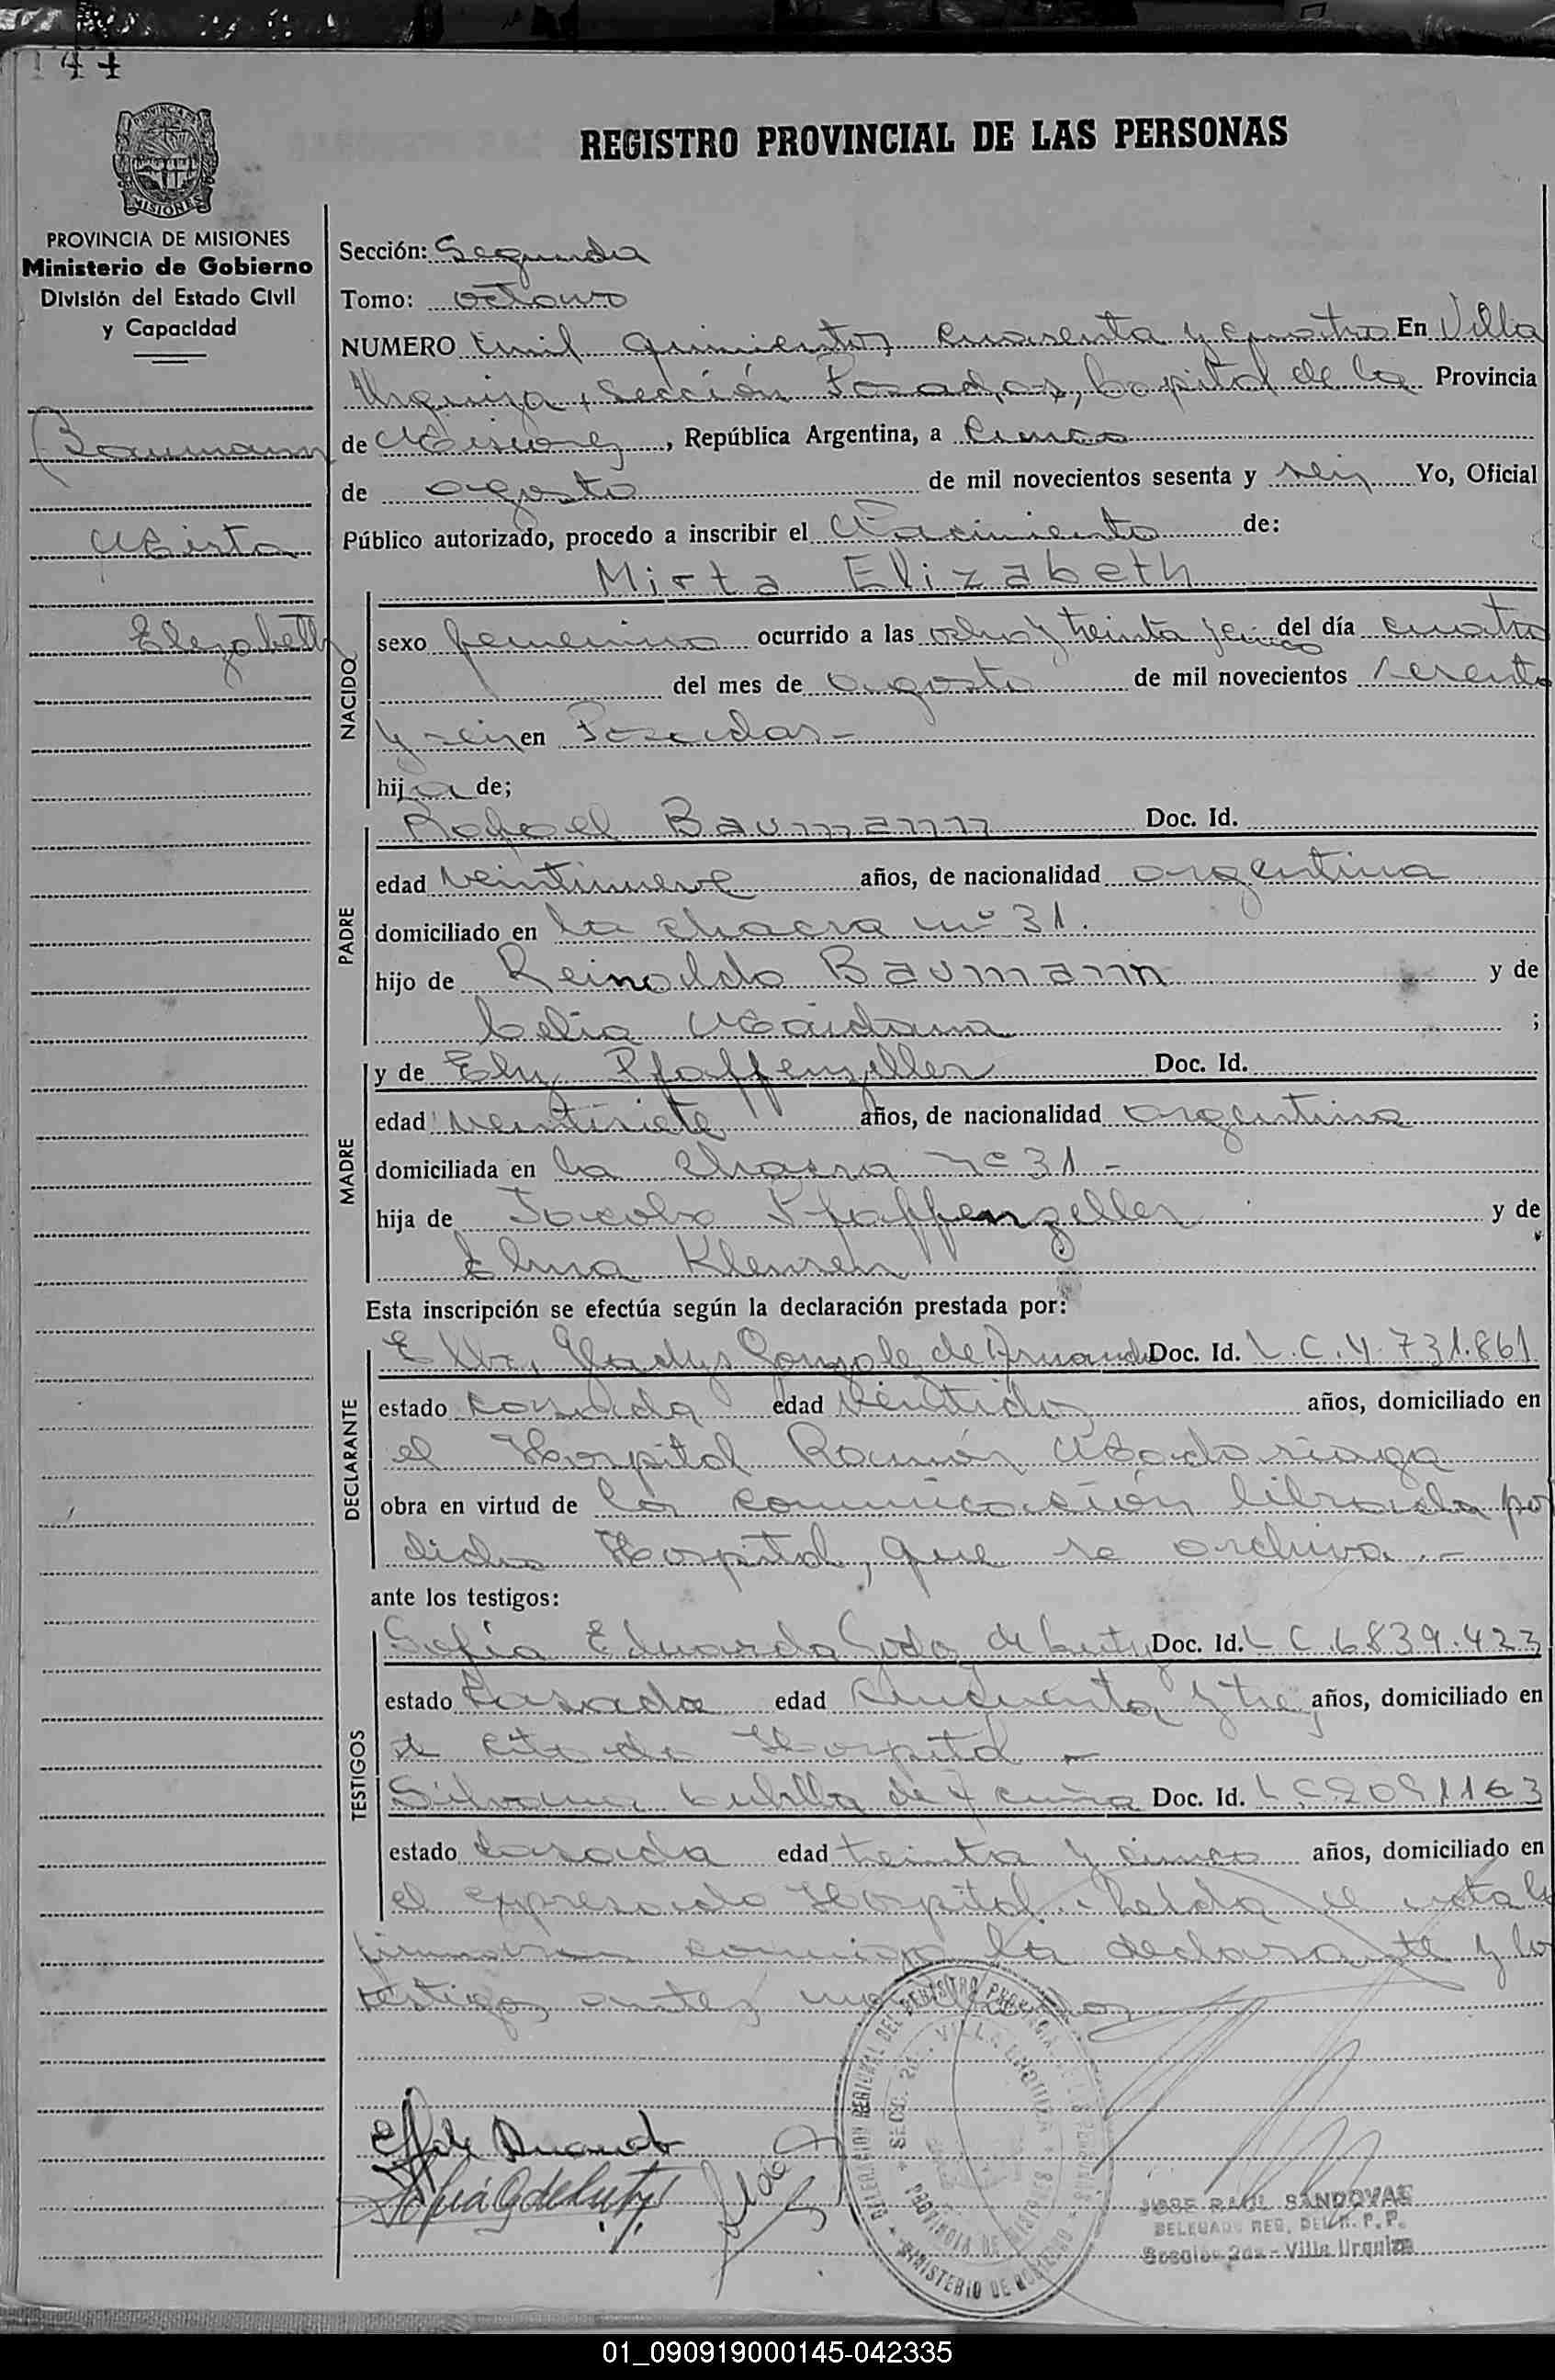 144
REGISTRO PROVINCIAL DE LAS PERSONAS
PROVINCIA DE MISIONES
Ministerio de Gobierno
División del Estado Civil
y Capacidad
Baumann
Mirta
Elizabeth
Sección: Segunda
Tomo: octavo
NUMERO mil quinientos cuarenta y cuatro En Villa
Urquiza, Sección Posadas, Capital de la Provincia
de Misiones, República Argentina, a cinco
de agosto de mil novecientos sesenta y seis Yo, Oficial
Público autorizado, procedo a inscribir el Nacimiento de:
Mirta Elizabeth
NACIDO
sexo femenino ocurrido a las ocho y treinta y cinco del día cuatro
del mes de agosto de mil novecientos sesenta
y seis en Posadas.-
hija de;
PADRE
Rafael Baumann Doc. Id.
edad veintinueve años, de nacionalidad argentina
domiciliado en la chacra nº 31.
hijo de Reinoldo Baumann y de
Celia Maidana ;
MADRE
y de Ely Pfaffenzeller Doc. Id.
edad veintisiete años, de nacionalidad argentina
domiciliada en la chacra nº 31 -
hija de Jacobo Pfaffenzeller y de
Elma Klemsen
Esta inscripción se efectúa según la declaración prestada por:
DECLARANTE
Gladys de Doc. Id. L.C.4.731.861
estado casada edad veintidos años, domiciliado en
el Hospital Ramón Madariaga
obra en virtud de la comunicación librada por
dicho Hospital, que se archiva.-
ante los testigos:
TESTIGOS
Sofía Eduarda de Doc. Id. L C 6839.423
estado casada edad cincuenta y tres años, domiciliado en
el citado Hospital -
Silvana de Acuña Doc. Id. L C 2091163
estado casada edad treinta y cinco años, domiciliado en
el expresado Hospital. Leída el acta la
firmaron conmigo la declarante y los
testigos antes
DELEGACION REGIONAL DEL REGISTRO PROVINCIAL DE LAS PERSONAS
SECC. 2da. VILLA URQUIZA
PROVINCIA DE MISIONES
MINISTERIO DE GOBIERNO
JOSE RAUL SANDOVAL
DELEGADO REG. DEL R. P. P.
Sección 2da - Villa Urquiza
01_090919000145-042335